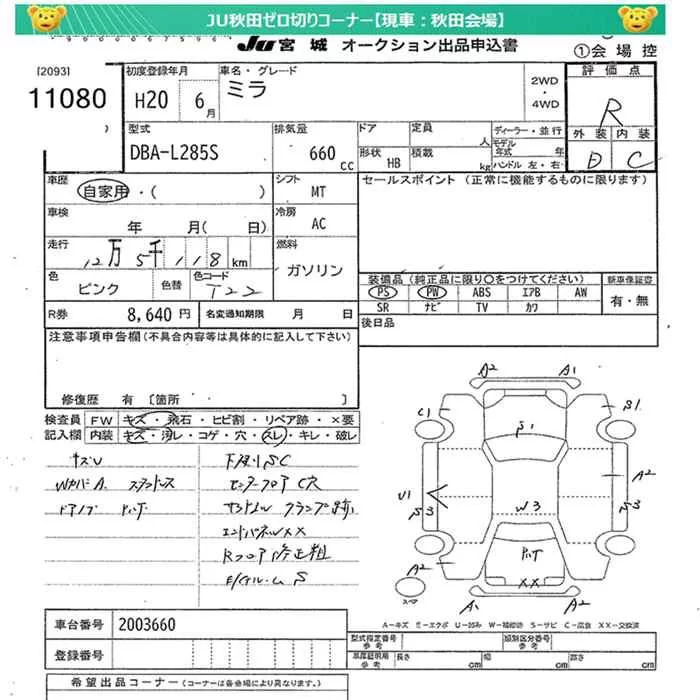 JU秋田ゼロ切りコーナー【現車：秋田会場】
JU 宮城 オークション出品申込書
①会場控
[2093]
11080
初度登録年月
H20 6月
車名・グレード
ミラ
2WD
・
4WD
評価点
R
外装 内装
D C
型式
DBA-L285S
排気量
660 CC
ドア
定員 人
形状 HB
積載 kg
ディーラー・並行
モデル年式 年
ハンドル 左・右
車歴
自家用・( )
シフト
MT
セールスポイント (正常に機能するものに限ります)
車検
年 月( 日)
冷房
AC
走行
12万5千118km
燃料
ガソリン
色
ピンク
色替
色コード
T22
装備品(純正品に限り○をつけてください)
PS PW ABS エアB AW
SR ナビ TV カワ
新車保証書
有・無
R券
8,640円
名変通知期限 月 日
後日品
注意事項申告欄(不具合内容等は具体的に記入して下さい)
修復歴 有 [箇所 ]
検査員記入欄
FW キズ・飛石・ヒビ割・リペア跡・×要
内装 キズ・汚レ・コゲ・穴・スレ・キレ・破レ
下廻りSC
センターフロアC穴
サイドシル クランプ跡
エンドパネルXX
Rフロア修正粗
E/GルームS
A2 A1
C1 S1
S1
A2
U1 S3
W3
S3
A2
XX
A2
スペア
A1 A2
A－キズ E－エクボ U－凹み W－補修跡 S－サビ C－腐食 XX－交換済
車台番号
2003660
登録番号
型式指定番号
参考
類別区分番号
参考
車庫証明用
参考
長さ cm
幅 cm
高さ cm
希望出品コーナー(コーナーは各会場により異なります。)